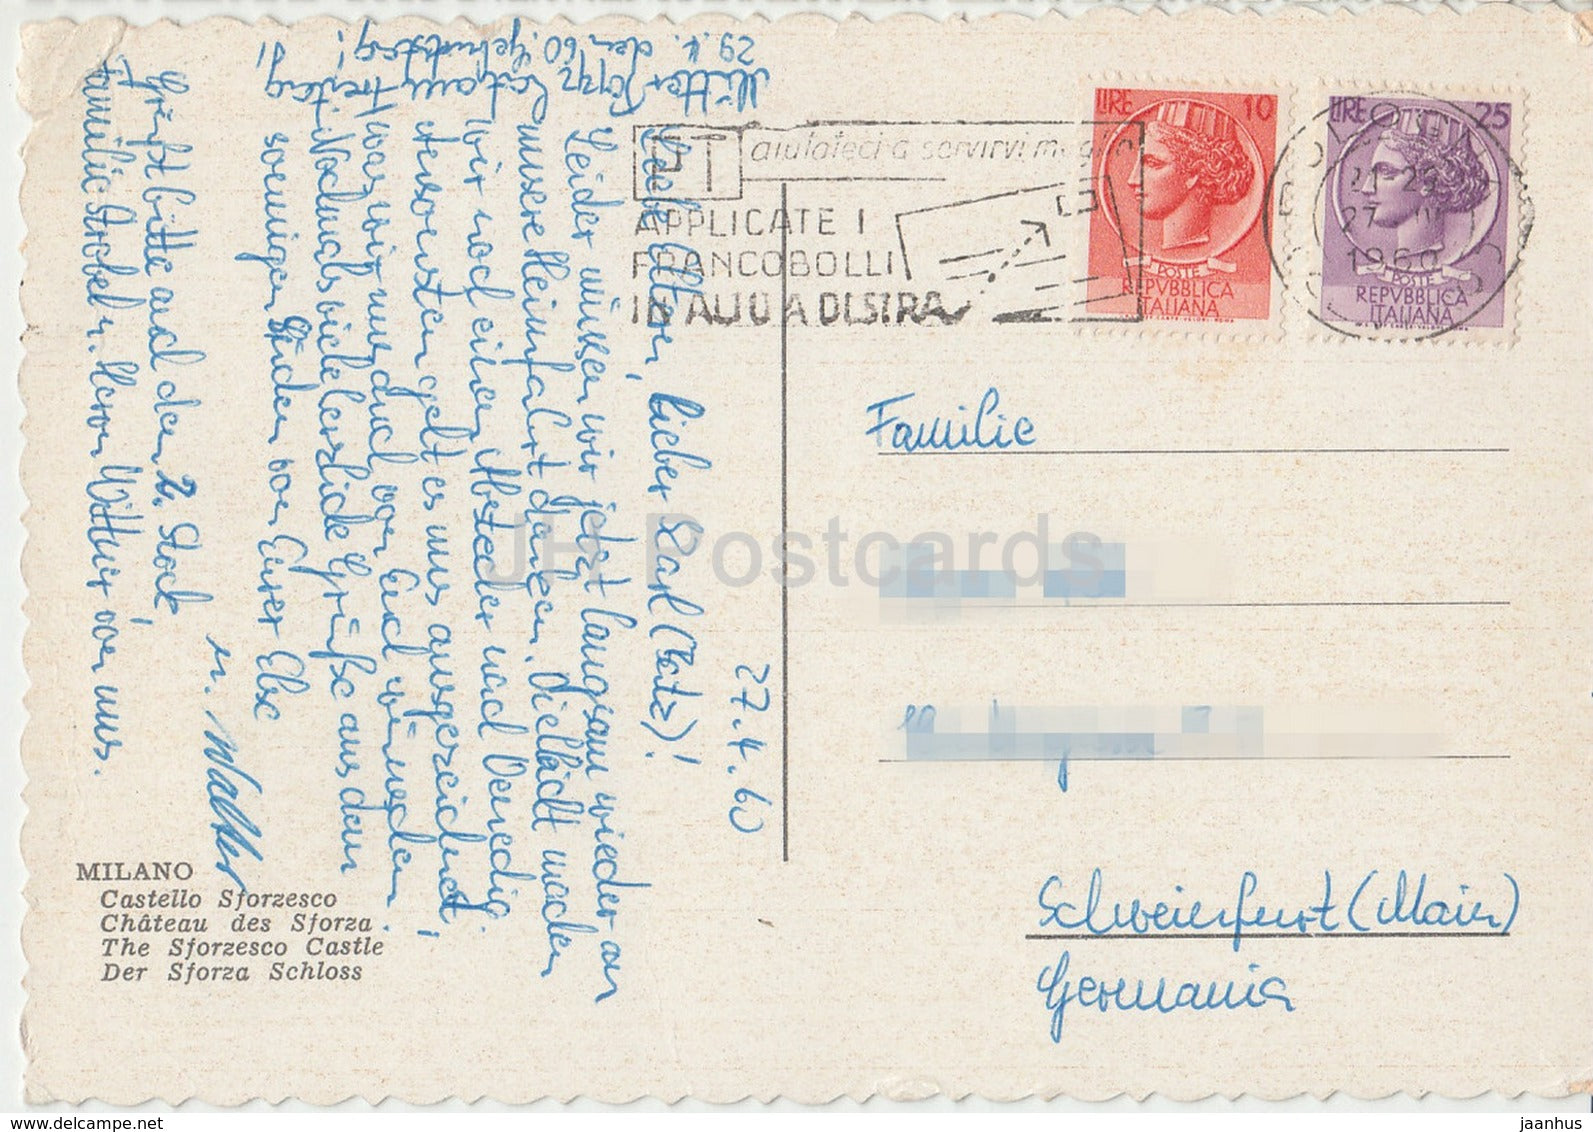 29.4. den 60. Geburtstag!
Mutter
27.4.60
Liebe Eltern, lieber Karl (Betz)!
Leider müssen wir jetzt langsam wieder an
unsere Heimfahrt denken. Vielleicht machen
wir noch einen Abstecher nach Venedig.
Ansonsten geht es uns ausgezeichnet,
was wir uns auch von Euch wünschen.
Nochmals viele herzliche Grüße aus dem
sonnigen Süden von Eurer Else
u. Walter
Grüßt bitte auch den 2. Stock,
Familie Strobel u. Herrn Wittner von uns.
MILANO
Castello Sforzesco
Château des Sforza
The Sforzesco Castle
Der Sforza Schloss
PT aiutateci a servirvi meglio
APPLICATE I
FRANCOBOLLI
IN ALTO A DESTRA
LIRE 10
POSTE
REPVBBLICA
ITALIANA
LIRE 25
POSTE
REPVBBLICA
ITALIANA
27 IV
1960
Familie
Schweinfurt (Main)
Germania
JH Postcards
www.delcampe.net
jaanhus